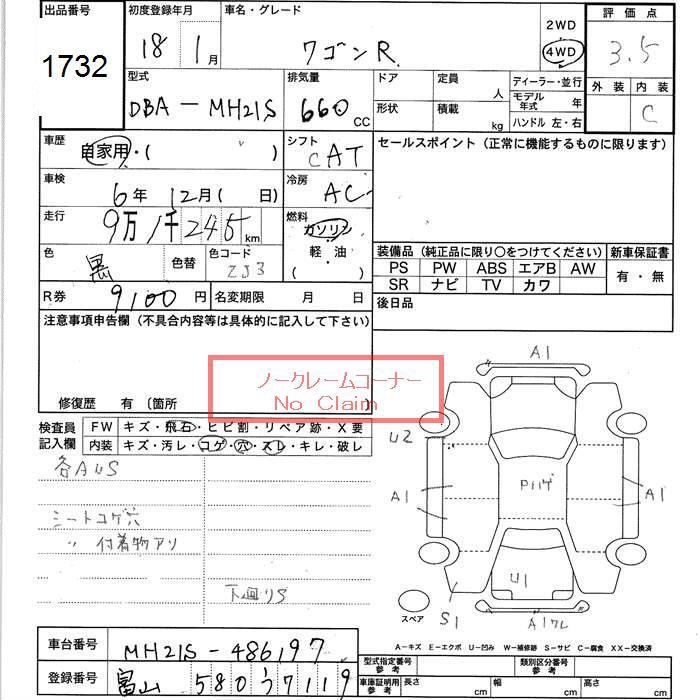 出品番号 初度登録年月 車名・グレード 2WD 評価点
1732 18 1月 ワゴンR 4WD 3.5
型式 排気量 ドア 定員 人 ディーラー・並行 外装 内装
DBA-MH21S 660 CC 形状 積載 kg モデル年式 年 C
ハンドル 左・右
車歴 自家用・( ) シフト CAT セールスポイント(正常に機能するものに限ります)
車検 6年 12月( 日) 冷房 AC
走行 9万1千245km 燃料 ガソリン
軽・油
・( )
色 黒 色替 色コード ZJ3
装備品(純正品に限り○をつけてください) 新車保証書
PS PW ABS エアB AW 有・無
SR ナビ TV カワ
R券 9100円 名変期限 月 日 後日品
注意事項申告欄(不具合内容等は具体的に記入して下さい)
ノークレームコーナー
No Claim
修復歴 有 〔箇所
検査員記入欄 FW キズ・飛石・ヒビ割・リペア跡・X要
内装 キズ・汚レ・コゲ・穴・スレ・キレ・破レ
各AUS
シートコゲ穴
〃 付着物アリ
下廻りS
A1
U2
A1 A1
U1
S1
スペア
A-キズ E-エクボ U-凹み W-補修跡 S-サビ C-腐食 XX-交換済
車台番号 MH21S-486197
登録番号 富山 580 う 7119
型式指定番号 参考 類別区分番号 参考
車庫証明用 参考 長さ cm 幅 cm 高さ cm